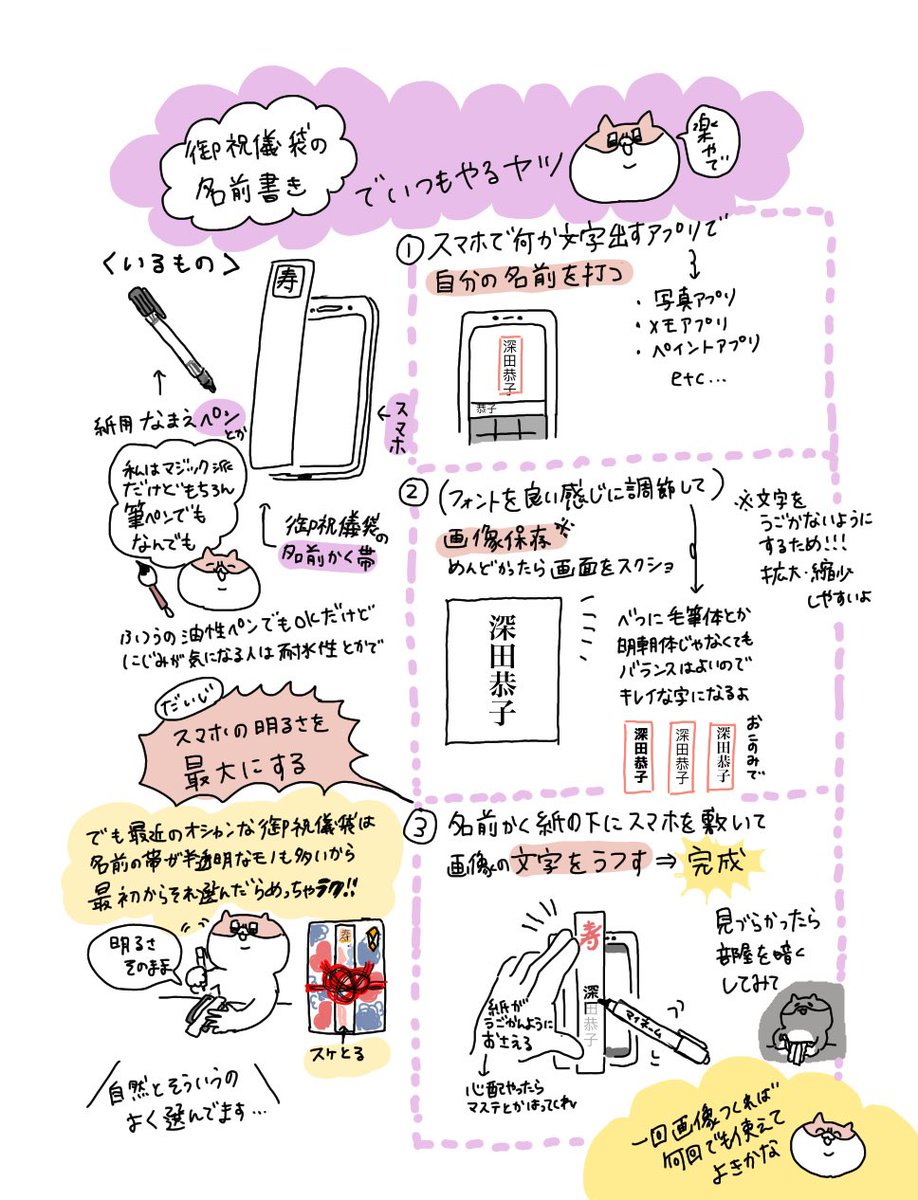 御祝儀袋の
名前書き
でいつもやるヤツ
楽やで
<いるもの>
寿
紙用なまえペン
とか
スマホ
御祝儀袋の
名前かく帯
私はマジック派
だけどもちろん
筆ペンでも
なんでも
ふつうの油性ペンでもOKだけど
にじみが気になる人は耐水性とかで
①スマホで何か文字出すアプリで
自分の名前を打つ
・写真アプリ
・メモアプリ
・ペイントアプリ
etc...
深田恭子
恭子
②(フォントを良い感じに調節して)
画像保存※
めんどかったら画面をスクショ
※文字を
うごかないように
するため!!!
拡大・縮少
しやすいよ
深田恭子
べつに毛筆体とか
明朝体じゃなくても
バランスはよいので
キレイな字になるよ
深田恭子
深田恭子
深田恭子
おこのみで
だいじ
スマホの明るさを
最大にする
③名前かく紙の下にスマホを敷いて
画像の文字をうつす⇒完成
寿
深田恭子
マイネーム
紙が
うごかんように
おさえる
心配やったら
マステとかはってくれ
見づらかったら
部屋を暗く
してみて
でも最近のオシャンな御祝儀袋は
名前の帯が半透明なモノも多いから
最初からそれ選んだらめっちゃラク!!
明るさ
そのまま
寿
スケとる
自然とそういうの
よく選んでます…
一回画像つくれば
何回でも使えて
よきかな